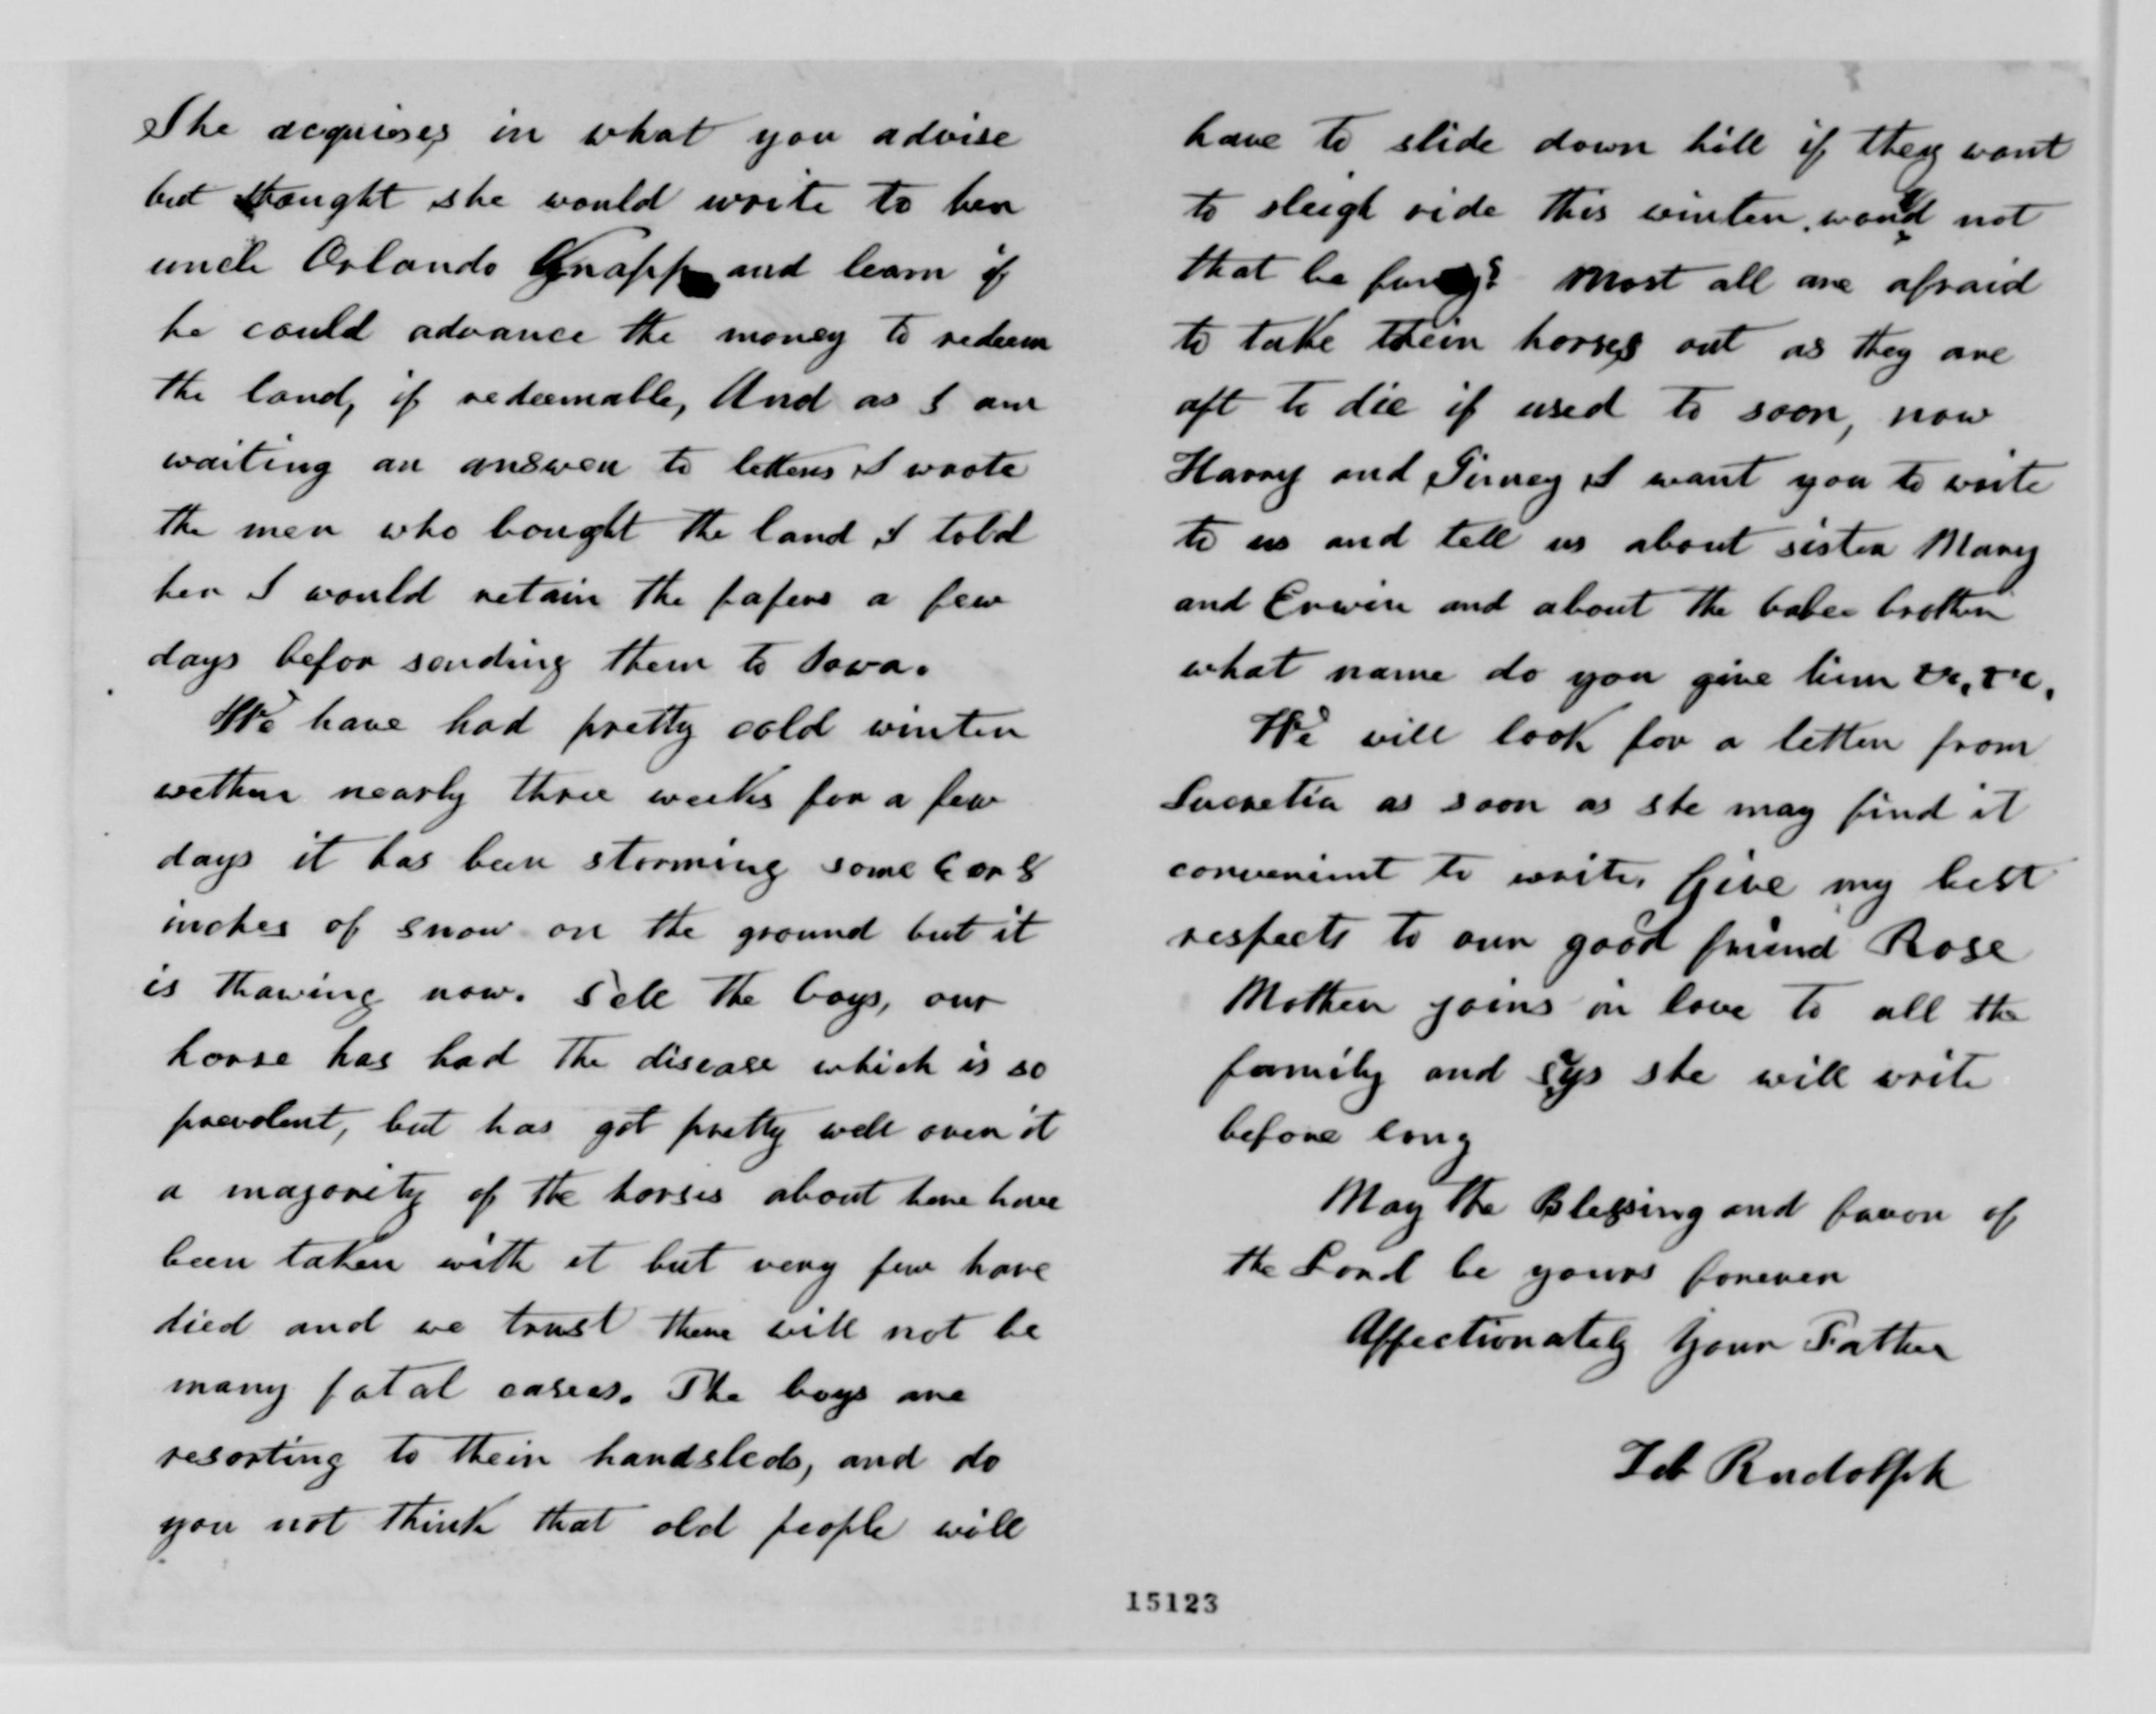 She acquieses in what you advise
but thought she would write to her
uncle Orlando Knapp and learn if
he could advance the money to redeem
the land, if redeemable, And as I am
waiting an answer to letters I wrote
the men who bought the land I told
her I would retain the papers a few
days befor sending them to Iowa.
We have had pretty cold winter
wether nearly three weeks for a few
days it has been storming some 6 or 8
inches of snow on the ground but it
is thawing now. Tell the boys, our
horse has had the disease which is so
prevalent, but has got pretty well over it
a majority of the horses about here have
been taken with it but very few have
died and we trust there will not be
many fatal cases. The boys are
resorting to their handsleds, and do
you not think that old people will
have to slide down hill if they want
to sleigh ride this winter, would not
that be funy? Most all are afraid
to take their horses out as they are
apt to die if used to soon, now
Harry and Jimey I want you to write
to us and tell us about sister Mary
and Erwin and about the babee brother
what name do you give him &c, &c,
We will look for a letter from
Lucretia as soon as she may find it
convenient to write, Give my best
respects to our good friend Rose
Mother joins in love to all the
family and says she will write
before long
May the Blessing and favor of
the Lord be yours forever
Affectionately Your Father
Zeb Rudolph
15123